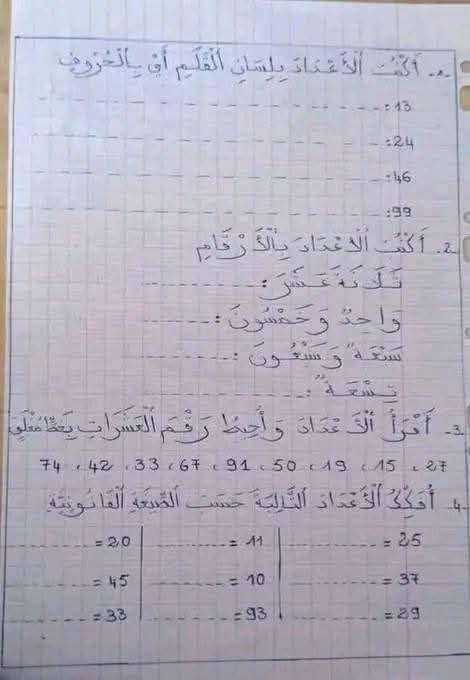 1. أَكْتُبُ الْأَعْدَادَ بِلِسَانِ الْقَلَمِ أَيْ بِالْحُرُوفِ
13:
24:
46:
99:
2. أَكْتُبُ الْأَعْدَادَ بِالْأَرْقَامِ
ثَلَاثَةَ عَشَرَ:
وَاحِدٌ وَخَمْسُونَ:
سَبْعَةٌ وَسَبْعُونَ:
تِسْعَةٌ:
3. أَقْرَأُ الْأَعْدَادَ وَأُحِيطُ رَقْمَ الْعَشَرَاتِ بِخَطٍّ مُغْلَقٍ
27 ، 15 ، 19 ، 50 ، 91 ، 67 ، 33 ، 42 ، 74
4. أُفَكِّكُ الْأَعْدَادَ التَّالِيَةَ حَسَبَ الصِّيغَةِ الْقَانُونِيَّةِ
25 = 11 = 20 =
37 = 10 = 45 =
29 = 93 = 33 =